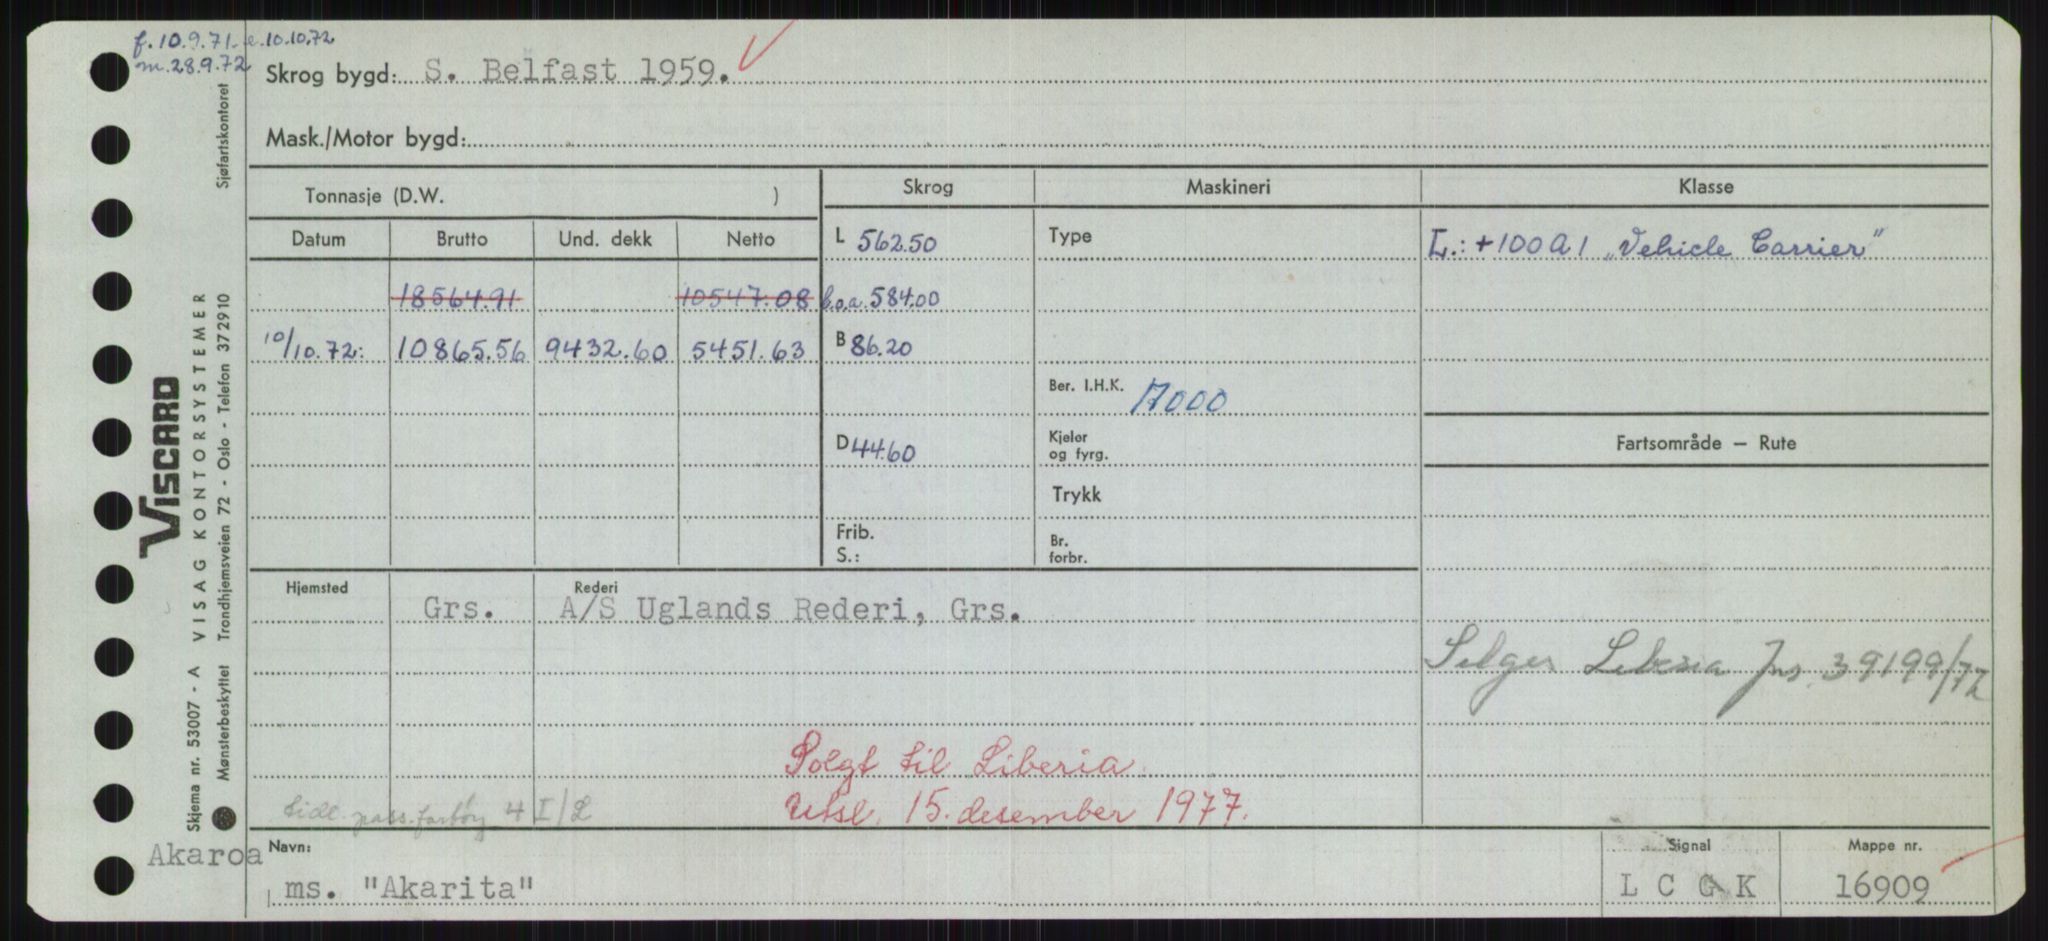 f. 10.9.71. e. 10.10.72
m. 28.9.72
Skrog bygd: S. Belfast 1959.
Mask./Motor bygd:
Tonnasje (D.W. )
Skrog Maskineri Klasse
Datum Brutto Und. dekk Netto
L 562.50 Type L.: +100A1 „Vehicle Carrier"
18564.91 10547.08 l.o.a. 584.00
10/10.72: 10865.56 9432.60 5451.63 B 86.20
Ber. I.H.K. 17000
D 44.60 Kjeler og fyrg. Fartsområde — Rute
Trykk
Frib. S.: Br. forbr.
Hjemsted Rederi
Grs. A/S Uglands Rederi, Grs.
Selger Liberia Jns 39199/72
Solgt til Liberia
Utsl. 15. desember 1977.
tidl. pass. fartøy 4 I/L
Akaroa
Navn: Signal Mappe nr.
ms. "Akarita" L C G K 16909
Skjema nr. 53007 - A VISAG KONTORSYSTEMER
Mønsterbeskyttet Trondhjemsveien 72 - Oslo - Telefon 372910 Sjøfartskontoret
VISCARD